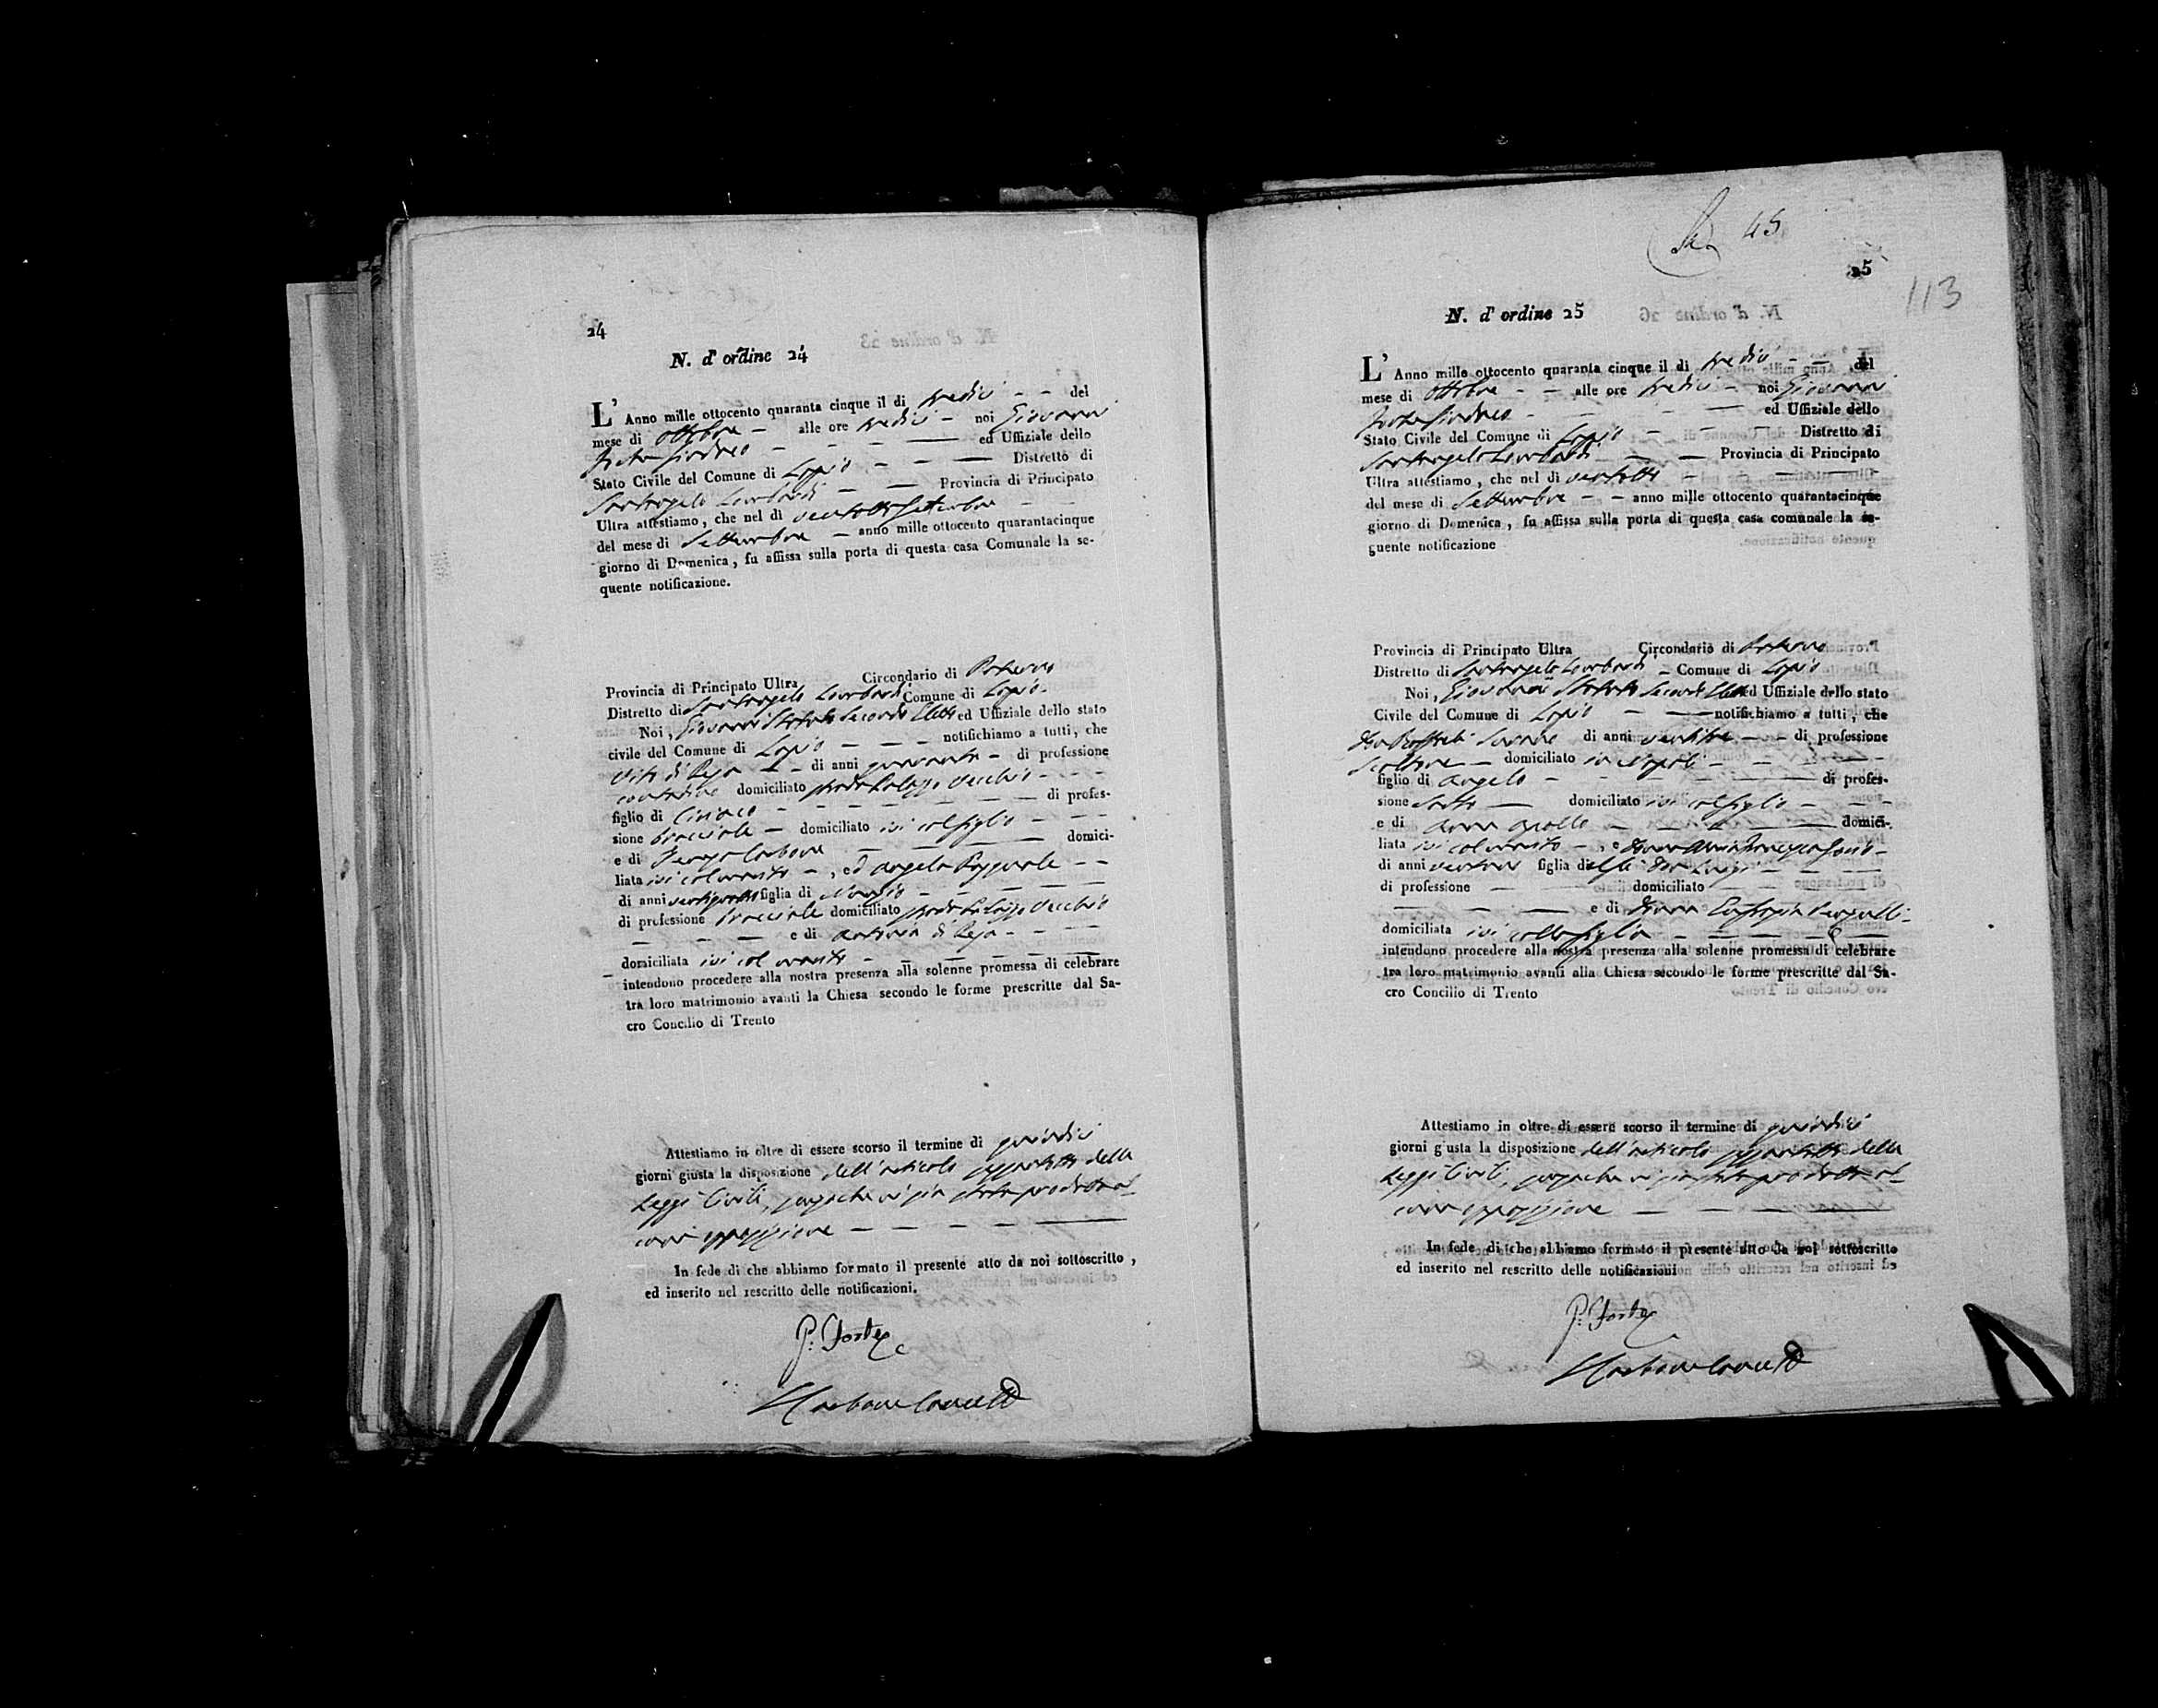 24
N. d' ordine 24
L' Anno mille ottocento quaranta cinque il di tredici del
mese di ottobre alle ore tredici noi Giovanni
ed Uffiziale dello
Stato Civile del Comune di Lapio Distretto di
Santangelo Lombardi Provincia di Principato
Ultra attestiamo, che nel di ventotto Settembre
del mese di Settembre anno mille ottocento quarantacinque
giorno di Domenica, fu affissa sulla porta di questa casa Comunale la se-
quente notificazione.
Provincia di Principato Ultra Circondario di Paterno
Distretto di Santangelo Lombardi Comune di Lapio
Noi, Giovanni Secondo Eletto ed Uffiziale dello stato
civile del Comune di Lapio notifichiamo a tutti, che
Vito di di anni quaranta di professione
contadino domiciliato strada Palazzo Vecchio
figlio di Ciriaco di profes-
sione bracciale domiciliato ivi col figlio
e di Carbone domici-
liata ivi col marito, ed Angela Pasquale
di anni ventiquattro figlia di Nunzio
di professione bracciale domiciliato strada Palazzo Vecchio
e di Antonia di
domiciliata ivi col marito
intendono procedere alla nostra presenza alla solenne promessa di celebrare
tra loro matrimonio avanti la Chiesa secondo le forme prescritte dal Sa-
cro Concilio di Trento
Attestiamo in oltre di essere scorso il termine di quindici
giorni giusta la disposizione dell'articolo settantotto delle
Leggi Civili, senza che vi sia stata prodotta al-
cuna opposizione
In fede di che abbiamo formato il presente atto da noi sottoscritto,
ed inserito nel rescritto delle notificazioni.
P. Forte
45
25
113
N. d' ordine 25
L' Anno mille ottocento quaranta cinque il di tredici del
mese di Ottobre alle ore tredici noi Giovanni
ed Uffiziale dello
Stato Civile del Comune di Lapio Distretto di
Santangelo Lombardi Provincia di Principato
Ultra attestiamo, che nel di ventotto
del mese di Settembre anno mille ottocento quarantacinque
giorno di Domenica, fu affissa sulla porta di questa casa comunale la se-
guente notificazione
Provincia di Principato Ultra Circondario di Paterno
Distretto di Santangelo Lombardi Comune di Lapio
Noi, Giovanni Secondo Eletto ed Uffiziale dello stato
Civile del Comune di Lapio notifichiamo a tutti, che
di anni ventitre di professione
Scultore domiciliato in Napoli
figlio di Angelo di profes-
sione Sarto domiciliato ivi col figlio
e di Anna domici-
liata ivi col marito, e Donna
di anni figlia Don Luigi
di professione domiciliato
e di Donna
domiciliata ivi colla figlia
intendono procedere alla nostra presenza alla solenne promessa di celebrare
tra loro matrimonio avanti alla Chiesa secondo le forme prescritte dal Sa-
cro Concilio di Trento
Attestiamo in oltre di essere scorso il termine di quindici
giorni giusta la disposizione dell'articolo settantotto delle
Leggi Civili, senza che vi sia stata prodotta al-
cuna opposizione
In fede di che abbiamo formato il presente atto da noi sottoscritto
ed inserito nel rescritto delle notificazioni
P. Forte